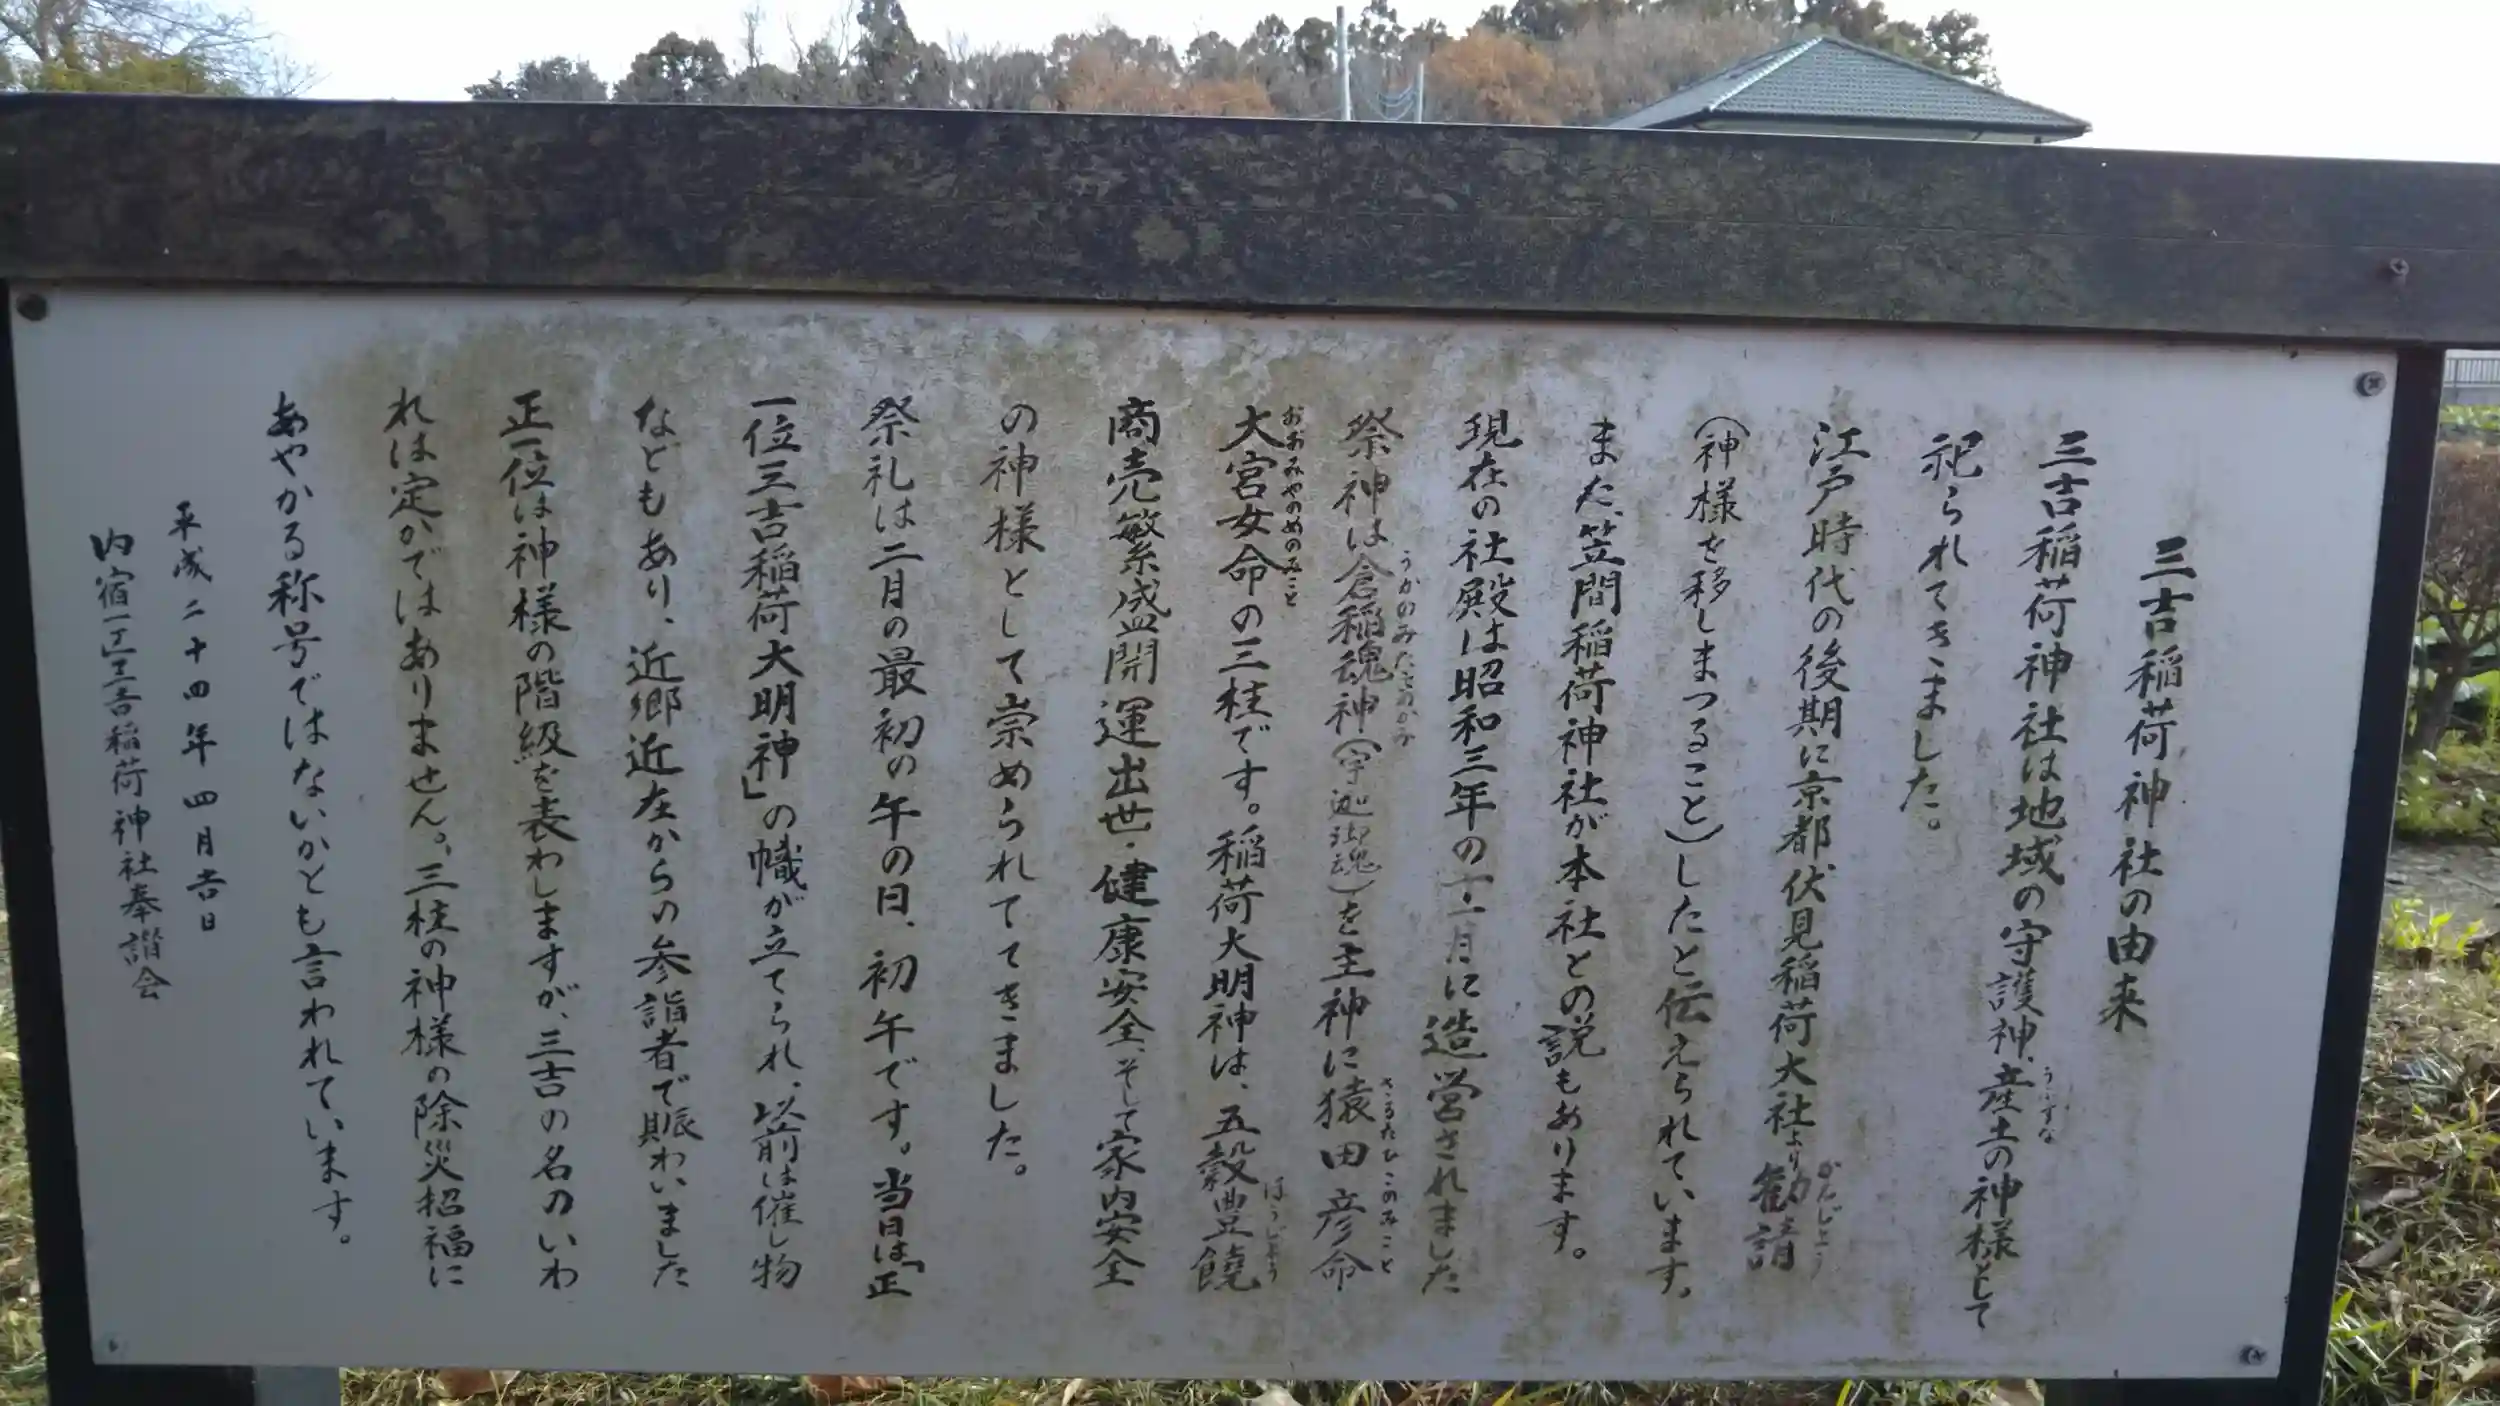 三吉稲荷神社の由来
三吉稲荷神社は地域の守護神、産土の神様として
うぶすな
祀られてきました。
江戸時代の後期に京都伏見稲荷大社より勧請
かんじょう
(神様を移しまつること)したと伝えられています。
また、笠間稲荷神社が本社との説もあります。
現在の社殿は昭和三年の十一月に造営されました
祭神は倉稲魂神(宇迦御魂)を主神に猿田彦命
うかのみたまのかみ
さるたひこのみこと
大宮女命の三柱です。稲荷大明神は、五穀豊饒
おおみやのめのみこと
ほうじょう
商売繁盛開運出世・健康安全、そして家内安全
の神様として崇められててきました。
祭礼は二月の最初の午の日、初午です。当日は「正
一位三吉稲荷大明神」の幟が立てられ、以前は催し物
などもあり、近郷近在からの参詣者で賑わいました
正一位は神様の階級を表わしますが、三吉の名のいわ
れは定かではありません。三柱の神様の除災招福に
あやかる称号ではないかとも言われています。
平成二十四年四月吉日
内宿一丁三吉稲荷神社奉讃会